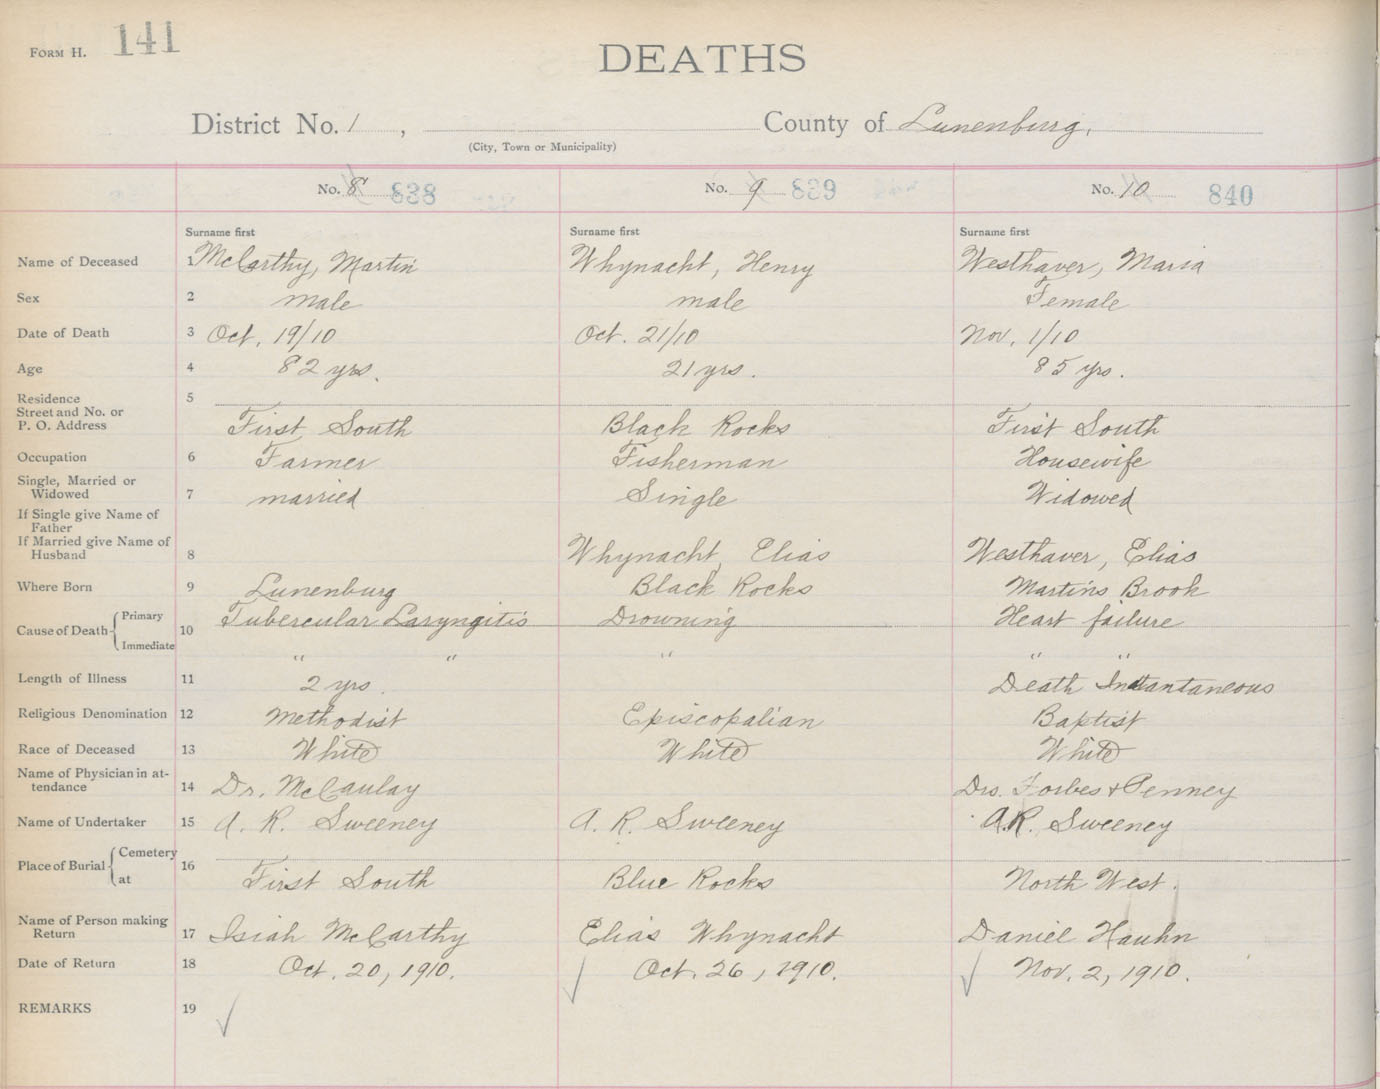 FORM H. 141
DEATHS
District No. 1 , County of Lunenburg,
(City, Town or Municipality)
No. 8 838 No. 9 839 No. 10 840
Surname first Surname first Surname first
Name of Deceased 1 McCarthy, Martin Whynacht, Henry Westhaver, Maria
Sex 2 male male Female
Date of Death 3 Oct. 19/10 Oct. 21/10 Nov. 1/10
Age 4 82 yrs. 21 yrs. 85 yrs.
Residence 5
Street and No. or
P. O. Address First South Black Rocks First South
Occupation 6 Farmer Fisherman Housewife
Single, Married or
Widowed 7 married Single Widowed
If Single give Name of
Father
If Married give Name of
Husband 8 Whynacht, Elias Westhaver, Elias
Where Born 9 Lunenburg Black Rocks Martins Brook
Cause of Death Primary 10 Tubercular Laryngitis Drowning Heart failure
Immediate " " " " "
Length of Illness 11 2 yrs. Death Instantaneous
Religious Denomination 12 Methodist Episcopalian Baptist
Race of Deceased 13 White White White
Name of Physician in at-
tendance 14 Dr. McCaulay Drs. Forbes + Penney
Name of Undertaker 15 A. R. Sweeney A. R. Sweeney A. R. Sweeney
Place of Burial Cemetery 16
at First South Blue Rocks North West.
Name of Person making
Return 17 Isiah McCarthy Elias Whynacht Daniel Hauhn
Date of Return 18 Oct. 20, 1910. Oct. 26, 1910. Nov. 2, 1910.
REMARKS 19